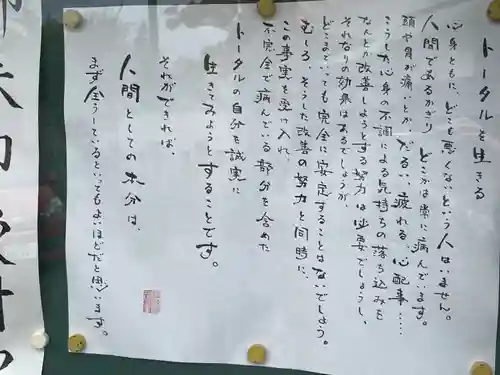 トータルを生きる
心身ともに、どこも悪くないという人はいません。
人間であるかぎり どこかは常に病んでいます。
頭や肩が痛いとか、だるい、疲れる、心配事……
こうした心身の不調による気持ちの落ち込みを
なんとか改善しようとする努力は必要でしょうし、
それなりの効果はあるでしょうが、
どこまでいっても完全に安定することはないでしょう。
むしろ、そうした改善の努力と同時に、
この事実を受け入れ、
不完全で病んでいる部分を含めた
トータルの自分を誠実に
生きてみようとすることです。
それができれば、
人間としての本分は、
まず全うしているといってもよいほどだと思います。